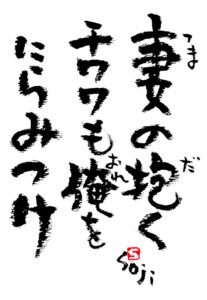 妻の抱く
つま
だ
チワワも俺を
おれ
にらみつけ
Soji
S